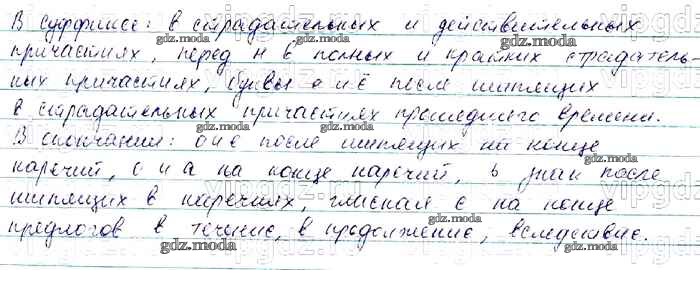 В суффиксе: в страдательных и действительных
причастиях, перед н в полных и кратких страдатель-
ных причастиях, буквы е и ё после шипящих
в страдательных причастиях прошедшего времени.
В окончании: о и е после шипящих на конце
наречий, о и а на конце наречий, ь знак после
шипящих в наречиях, гласная е на конце
предлогов в течение, в продолжение, вследствие.